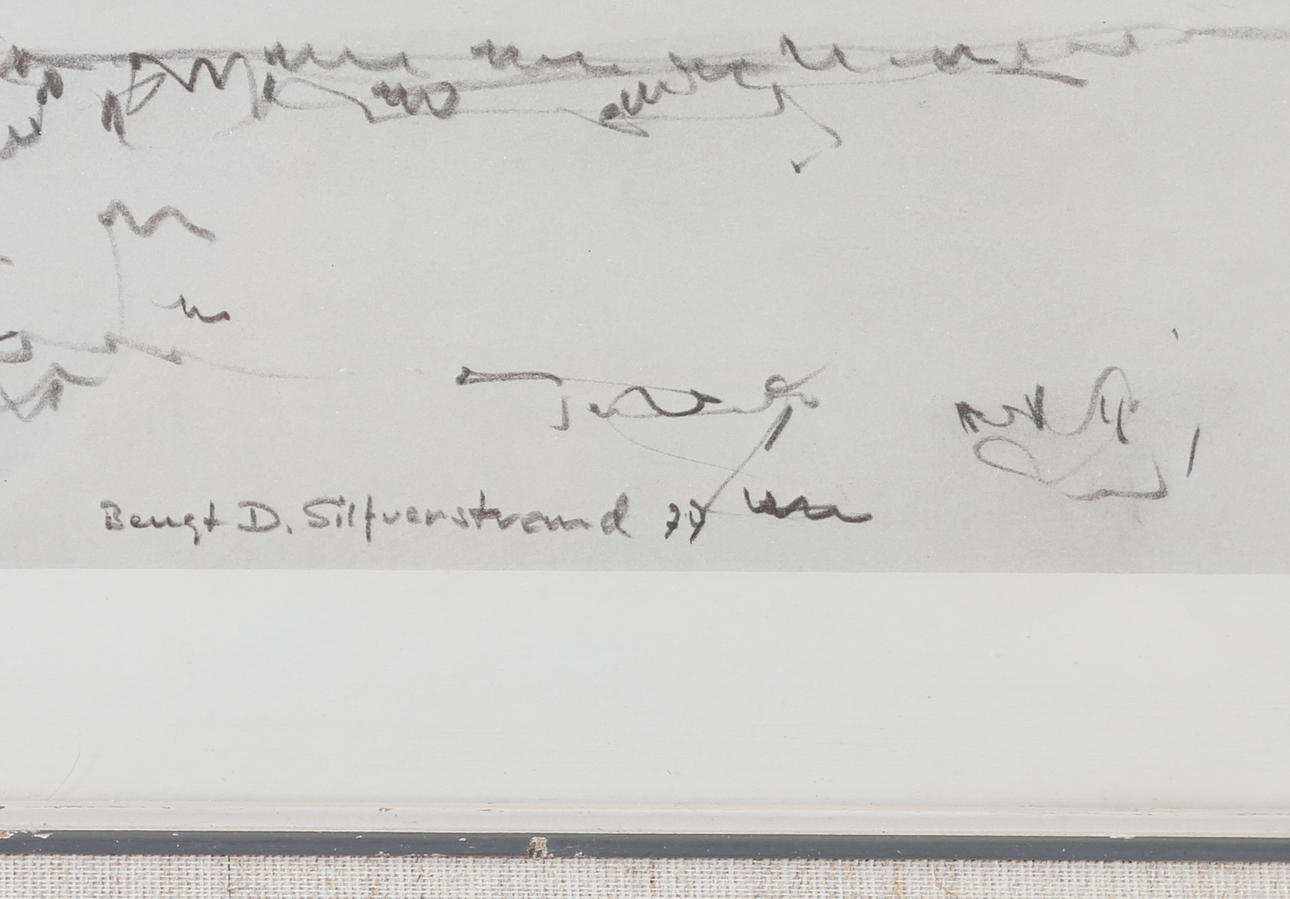 Bengt D. Silfverstrand